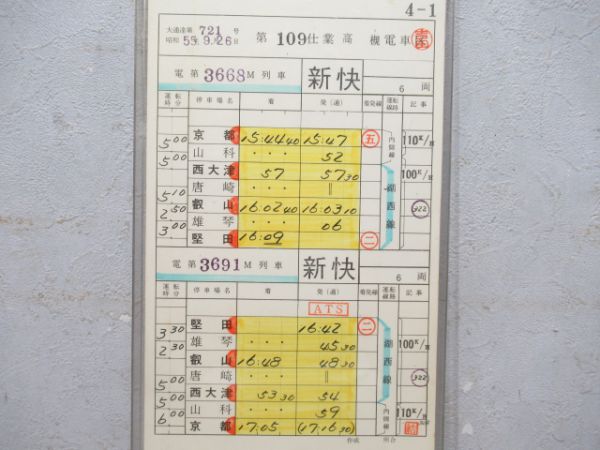 4-1
大運達第 721 号
昭和 53.9.26 日
第 109 仕業 高 機電車
電 第 3668 M 列車 新快 6 両
運転時分 停車場名 着 発(通) 着発線 運転線路 記事
京都 15:44 40 15:47 五 内側線 110K/
5 00
山科 ・・・ 52
5 00
西大津 57 57 30 湖西線 100K/
唐崎 ・・・ ‖
5 10
叡山 16:02 40 16:03 10 322
2 50
雄琴 ・・・ 06
3 00
堅田 16:09 二
電 第 3691 M 列車 新快 6 両
運転時分 停車場名 着 発(通) 着発線 運転線路 記事
ATS
堅田 16:42 二 湖西線 100K/
3 30
雄琴 ・・・ 45 30
2 30
叡山 16:48 48 30
唐崎 ・・・ ‖ 322
5 00
西大津 53 30 54
5 00
山科 ・・・ 59 内側線 110K/
6 00
京都 17:05 (17:16 30)
作成 照合